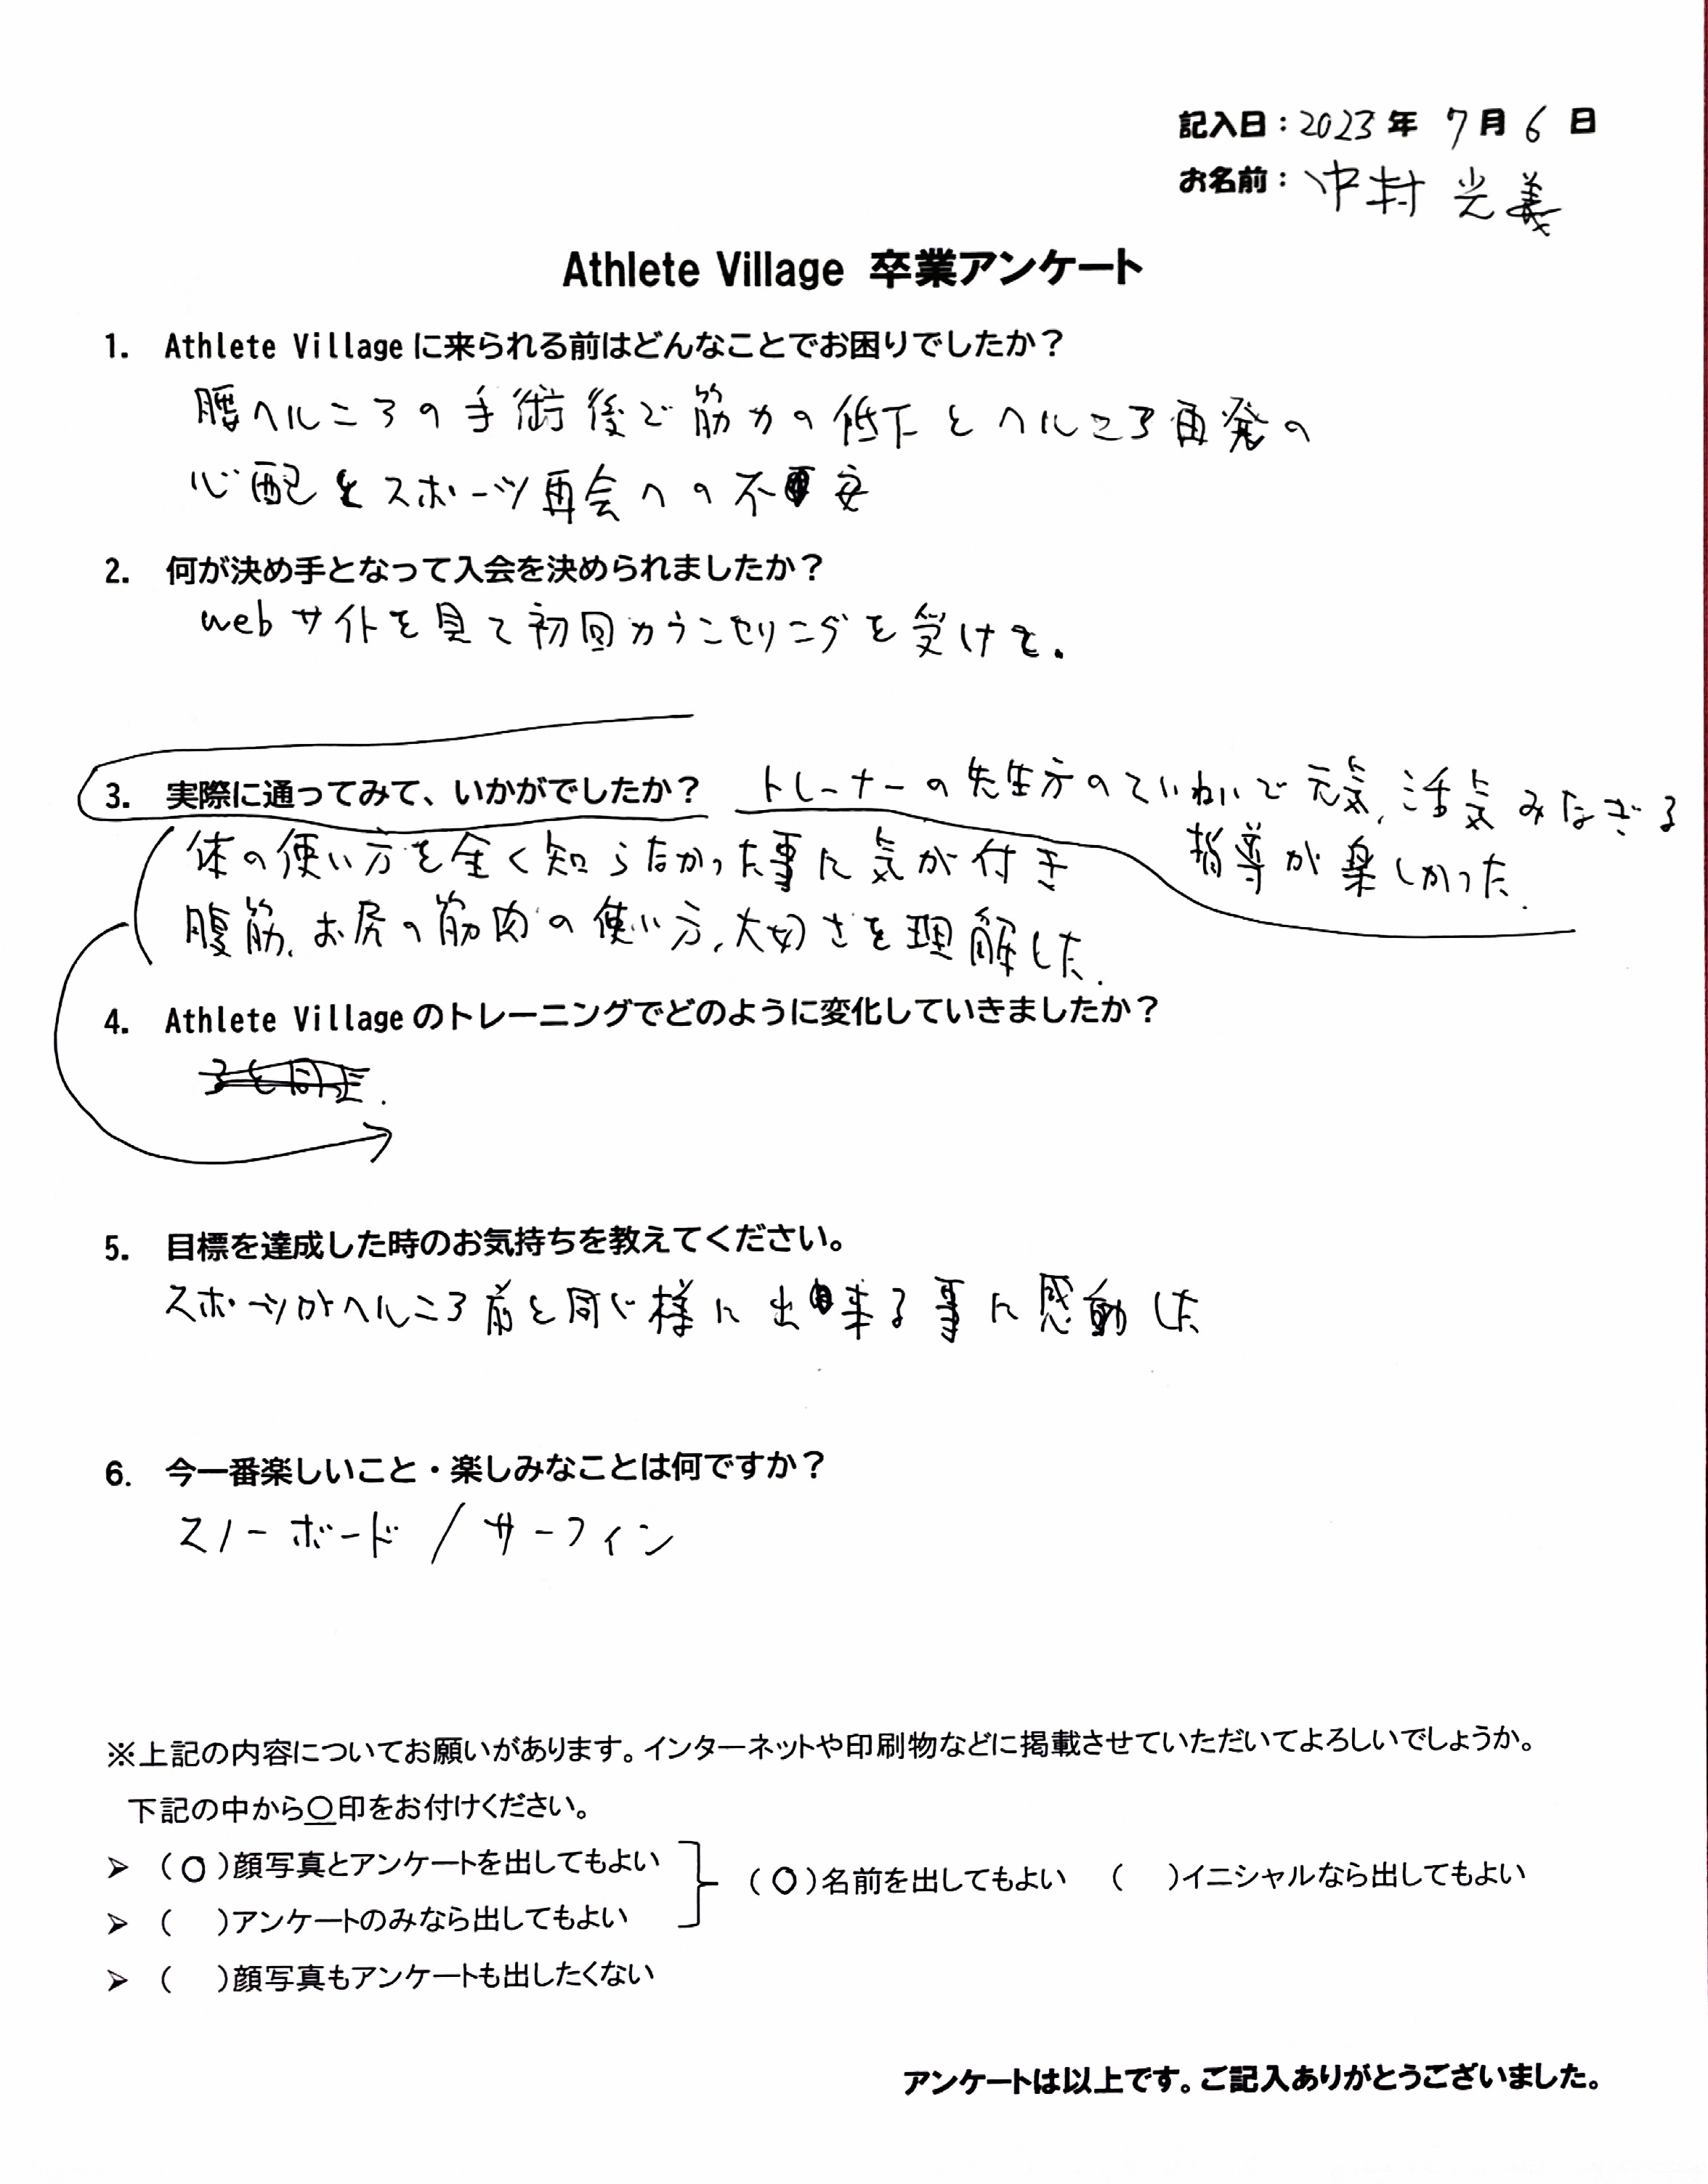 記入日：2023年 7月 6日
お名前：中村 光義
Athlete Village 卒業アンケート
1. Athlete Villageに来られる前はどんなことでお困りでしたか？
腰ヘルニアの手術後で筋力の低下とヘルニア再発の
心配とスポーツ再会への不安
2. 何が決め手となって入会を決められましたか？
webサイトを見て初回カウンセリングを受けて.
3. 実際に通ってみて、いかがでしたか？
トレーナーの先生方のていねいで元気、活気みなぎる
指導が楽しかった.
体の使い方を全く知らなかった事に気が付き
腹筋、お尻の筋肉の使い方、大切さを理解した.
4. Athlete Villageのトレーニングでどのように変化していきましたか？
5. 目標を達成した時のお気持ちを教えてください。
スポーツがヘルニア前と同じ様に出来る事に感動した
6. 今一番楽しいこと・楽しみなことは何ですか？
スノーボード / サーフィン
※上記の内容についてお願いがあります。インターネットや印刷物などに掲載させていただいてよろしいでしょうか。
下記の中から〇印をお付けください。
➢ （〇）顔写真とアンケートを出してもよい
（〇）名前を出してもよい （ ）イニシャルなら出してもよい
➢ （ ）アンケートのみなら出してもよい
➢ （ ）顔写真もアンケートも出したくない
アンケートは以上です。ご記入ありがとうございました。